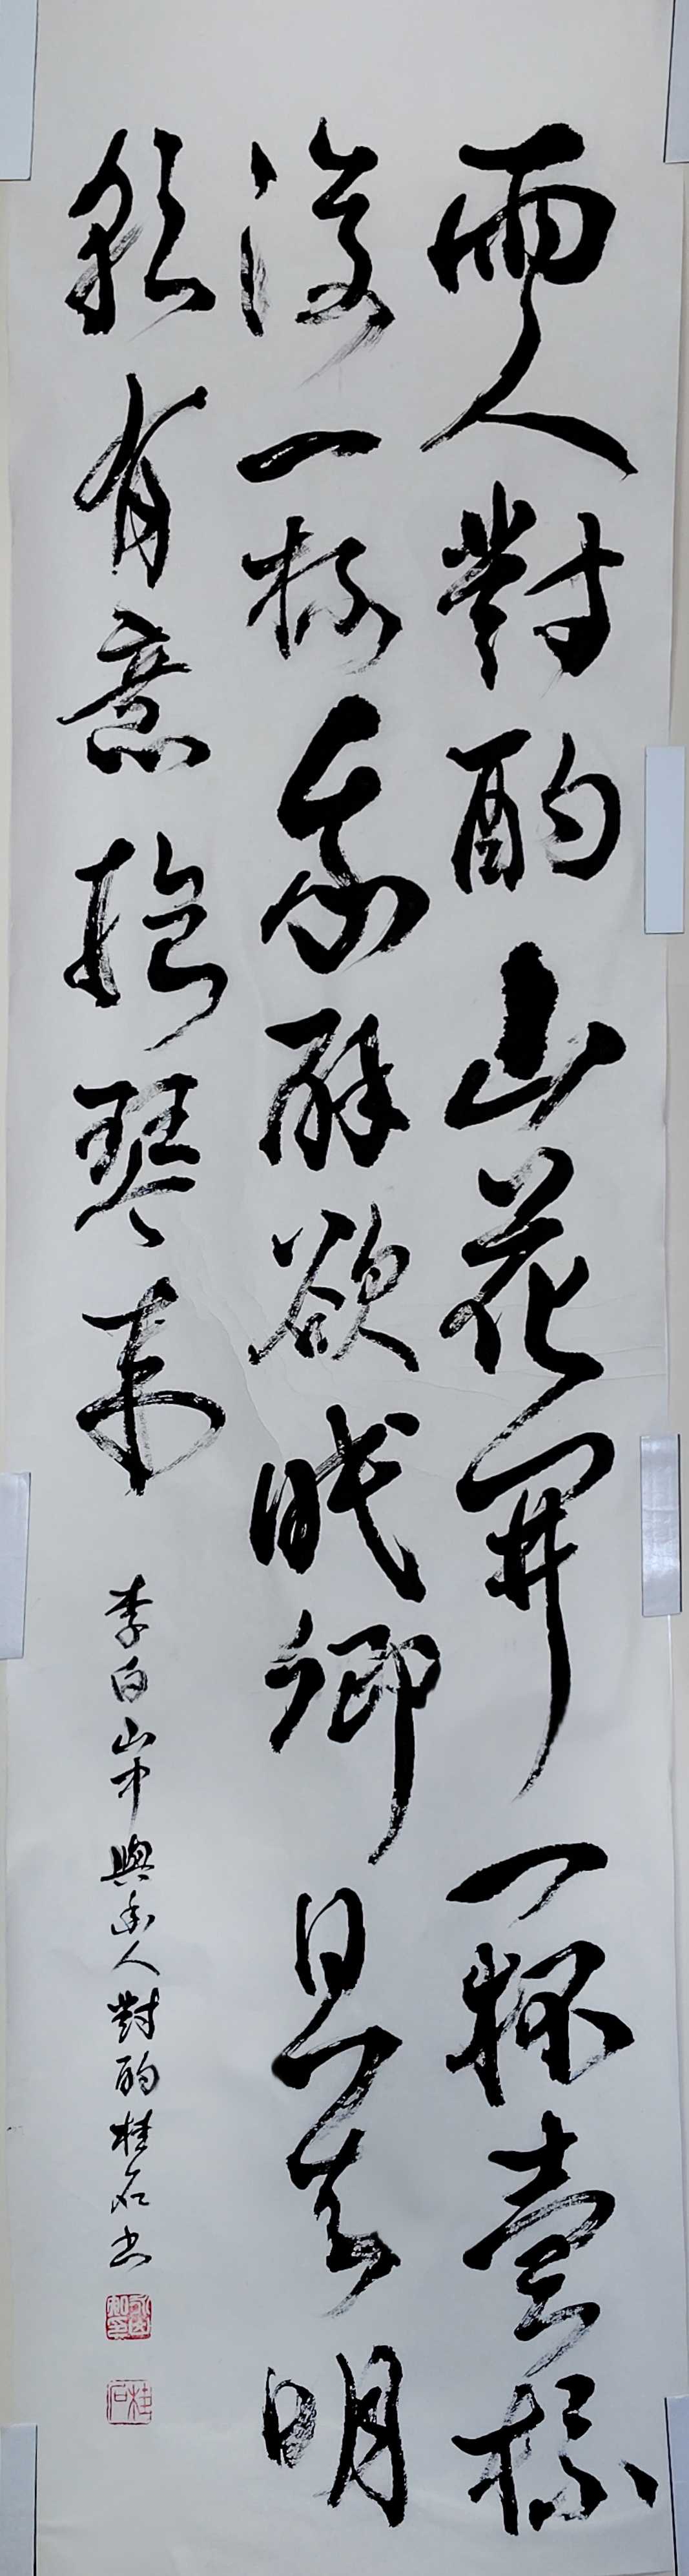 兩人對酌山花開一杯壹杯
復一杯我醉欲眠卿且去明
朝有意抱琴來
李白山中與幽人對酌桂石书
桂石